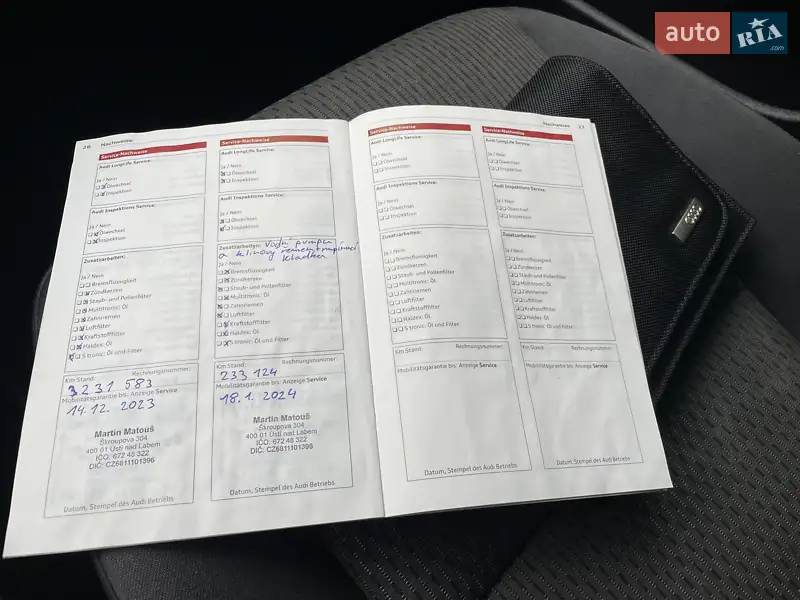 auto RIA .com
26 Nachweise
Service-Nachweise
Audi LongLife Service:
Ja / Nein
Ölwechsel
Inspektion
Audi Inspektions Service:
Ja / Nein
Ölwechsel
Inspektion
Zusatzarbeiten:
Ja / Nein
Bremsflüssigkeit
Zündkerzen
Staub- und Pollenfilter
Multitronic: Öl
Zahnriemen
Luftfilter
Kraftstofffilter
Haldex: Öl
S tronic: Öl und Filter
Km Stand: Rechnungsnummer:
3231 583
Mobilitätsgarantie bis: Anzeige Service
14.12. 2023
Martin Matouš
Škroupova 304
400 01 Ústí nad Labem
IČO: 672 48 322
DIČ: CZ6811101396
Datum, Stempel des Audi Betriebs
Service-Nachweise
Audi LongLife Service:
Ja / Nein
Ölwechsel
Inspektion
Audi Inspektions Service:
Ja / Nein
Ölwechsel
Inspektion
Zusatzarbeiten: Vodní pumpa,
a klínový řemen + napínací
kladka
Ja / Nein
Bremsflüssigkeit
Zündkerzen
Staub- und Pollenfilter
Multitronic: Öl
Zahnriemen
Luftfilter
Kraftstofffilter
Haldex: Öl
S tronic: Öl und Filter
Km Stand: Rechnungsnummer:
233 124
Mobilitätsgarantie bis: Anzeige Service
18.1. 2024
Martin Matouš
Škroupova 304
400 01 Ústí nad Labem
IČO: 672 48 322
DIČ: CZ6811101396
Datum, Stempel des Audi Betriebs
Nachweise 27
Service-Nachweise
Audi LongLife Service:
Ja / Nein
Ölwechsel
Inspektion
Audi Inspektions Service:
Ja / Nein
Ölwechsel
Inspektion
Zusatzarbeiten:
Ja / Nein
Bremsflüssigkeit
Zündkerzen
Staub- und Pollenfilter
Multitronic: Öl
Zahnriemen
Luftfilter
Kraftstofffilter
Haldex: Öl
S tronic: Öl und Filter
Km Stand: Rechnungsnummer:
Mobilitätsgarantie bis: Anzeige Service
Datum, Stempel des Audi Betriebs
Service-Nachweise
Audi LongLife Service:
Ja / Nein
Ölwechsel
Inspektion
Audi Inspektions Service:
Ja / Nein
Ölwechsel
Inspektion
Zusatzarbeiten:
Ja / Nein
Bremsflüssigkeit
Zündkerzen
Staub- und Pollenfilter
Multitronic: Öl
Zahnriemen
Luftfilter
Kraftstofffilter
Haldex: Öl
S tronic: Öl und Filter
Km Stand: Rechnungsnummer:
Mobilitätsgarantie bis: Anzeige Service
Datum, Stempel des Audi Betriebs